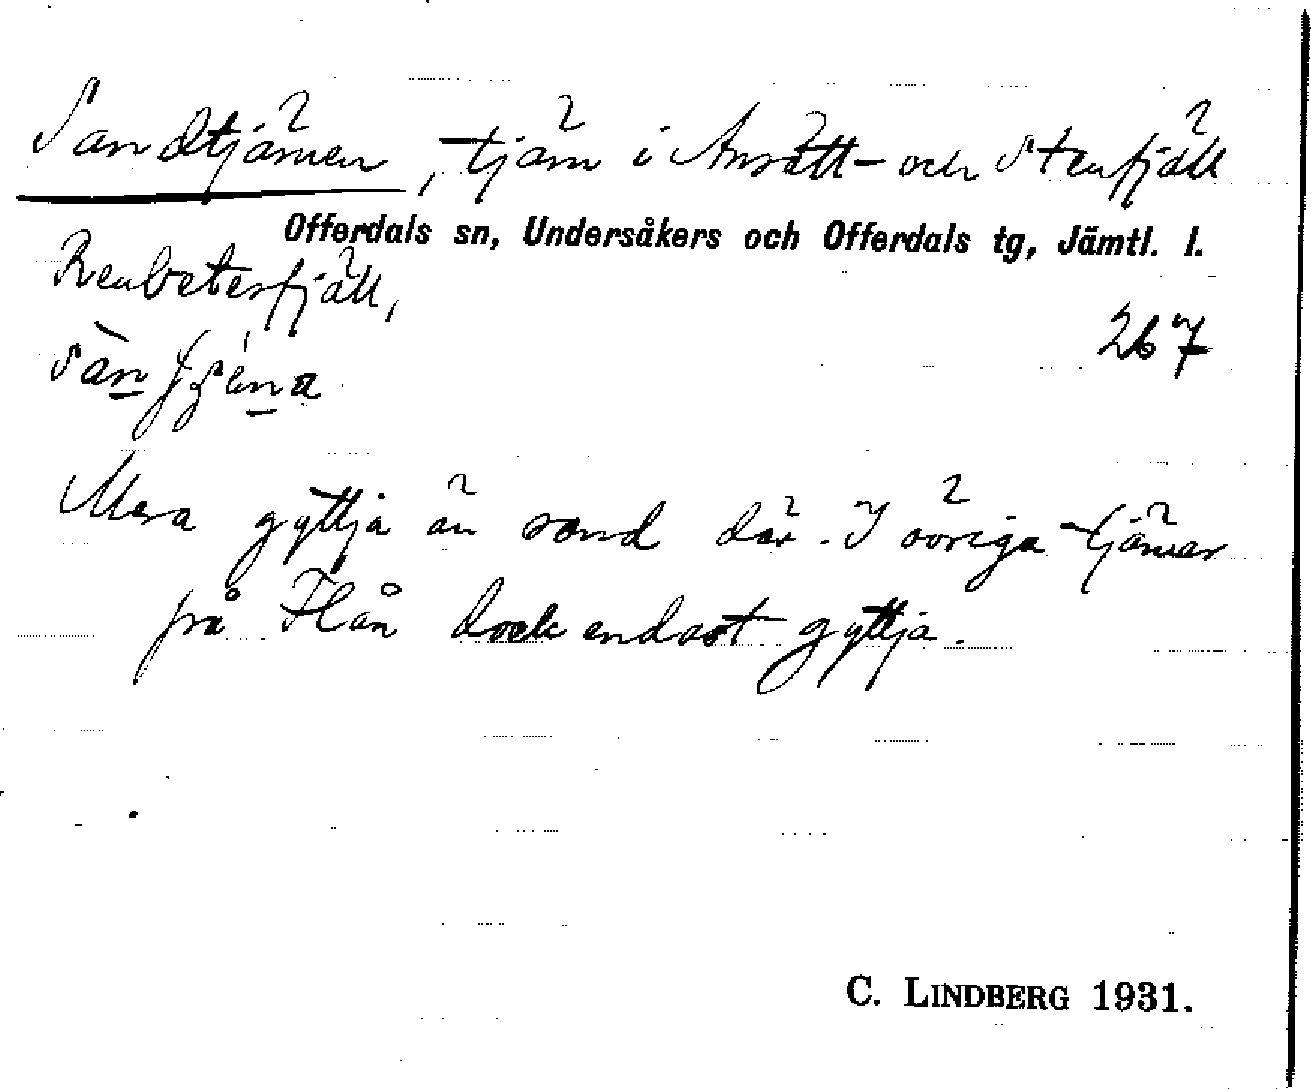 Sandtjärnen, tjärn i Ansätt- och Stenfjäll
Offerdals sn, Undersåkers och Offerdals tg, Jämtl. l.
Renbetesfjäll,
267
Mera gyttja än sand där. I övriga tjärnar
på Flån dock endast gyttja.
C. LINDBERG 1931.